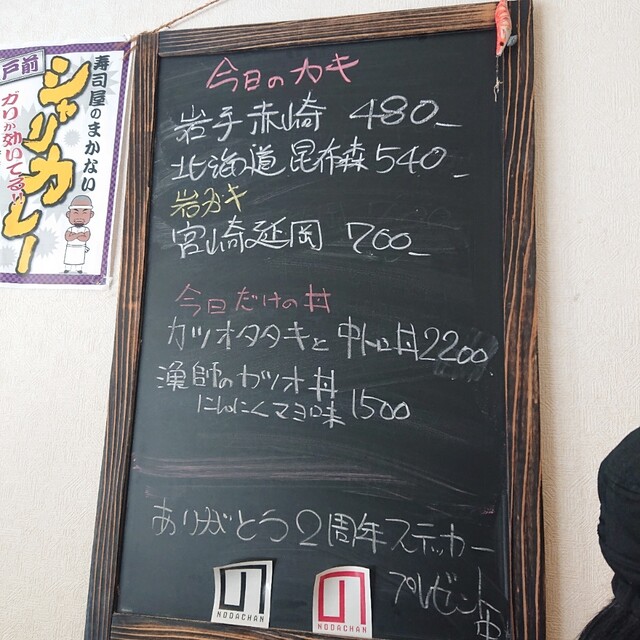 戸前
寿司屋のまかない
シャリカレー
ガリが効いてるぅ!
今日のカキ
岩手赤崎 480_
北海道昆布森 540_
岩ガキ
宮崎延岡 700_
今日だけの丼
カツオタタキと中トロ丼2200
漁師のカツオ丼
にんにくマヨ味 1500
ありがとう2周年ステッカー
プレゼント
の
NODACHAN
の
NODACHAN